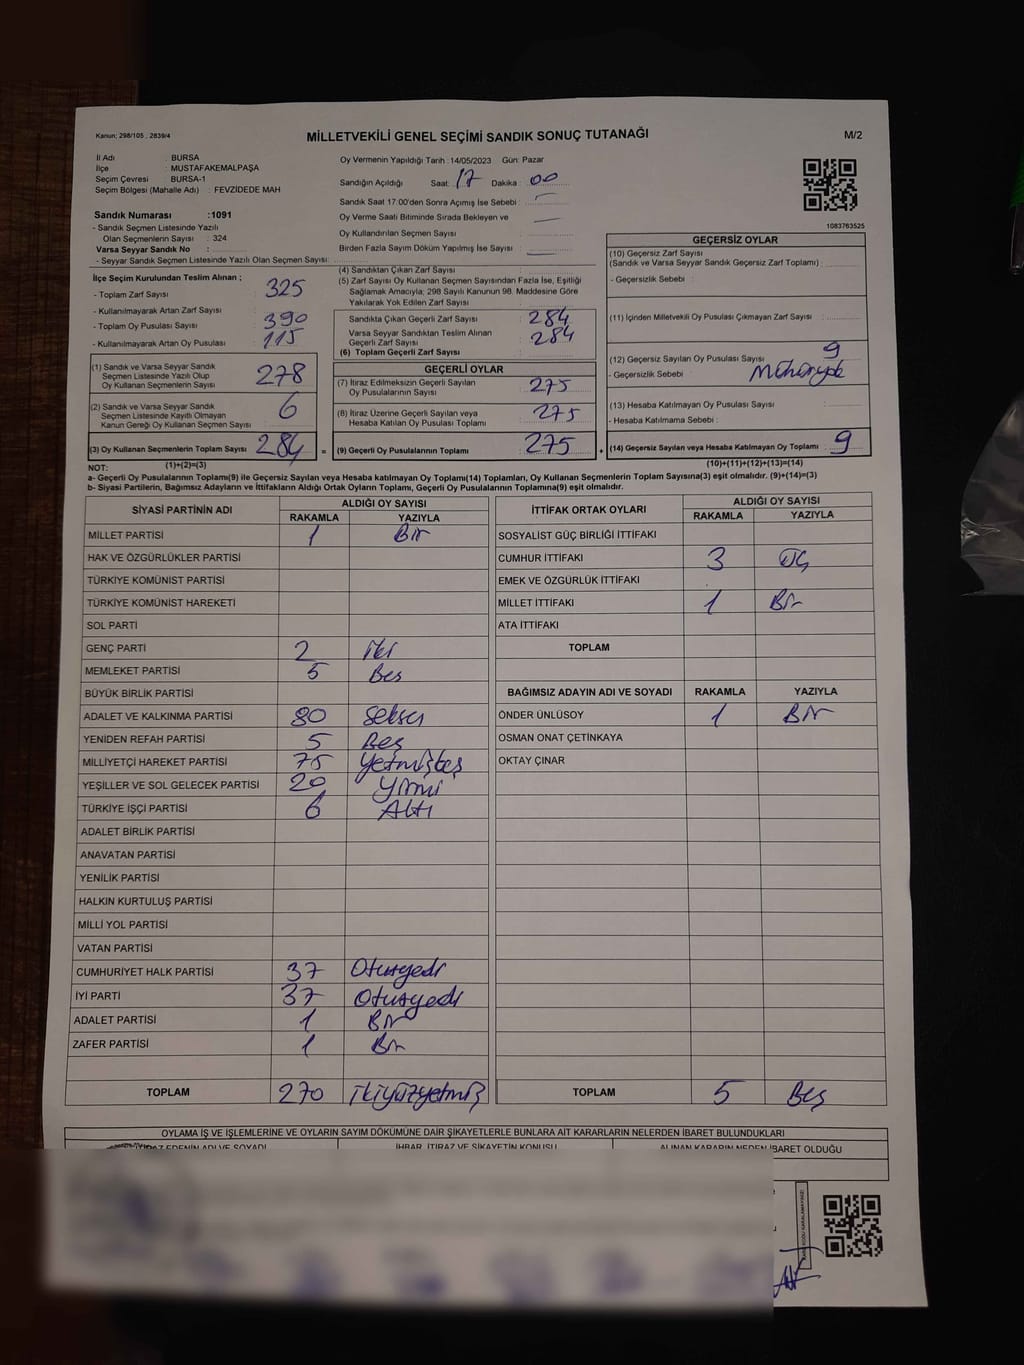 Kanun; 298/105 , 2839/4
MİLLETVEKİLİ GENEL SEÇİMİ SANDIK SONUÇ TUTANAĞI
M/2
İl Adı : BURSA
İlçe : MUSTAFAKEMALPAŞA
Seçim Çevresi : BURSA-1
Seçim Bölgesi (Mahalle Adı) : FEVZİDEDE MAH
Sandık Numarası :1091
- Sandık Seçmen Listesinde Yazılı
Olan Seçmenlerin Sayısı : 324
Varsa Seyyar Sandık No :
- Seyyar Sandık Seçmen Listesinde Yazılı Olan Seçmen Sayısı:
Oy Vermenin Yapıldığı Tarih :14/05/2023 Gün: Pazar
Sandığın Açıldığı Saat: 17 Dakika : 00
Sandık Saat 17.00'den Sonra Açımış İse Sebebi : —
Oy Verme Saati Bitiminde Sırada Bekleyen ve
Oy Kullandırılan Seçmen Sayısı : —
Birden Fazla Sayım Döküm Yapılmış İse Sayısı : —
1083763525
İlçe Seçim Kurulundan Teslim Alınan ;
- Toplam Zarf Sayısı : 325
- Kullanılmayarak Artan Zarf Sayısı :
- Toplam Oy Pusulası Sayısı : 390
- Kullanılmayarak Artan Oy Pusulası : 115
(1) Sandık ve Varsa Seyyar Sandık
Seçmen Listesinde Yazılı Olup
Oy Kullanan Seçmenlerin Sayısı : 278
(2) Sandık ve Varsa Seyyar Sandık
Seçmen Listesinde Kayıtlı Olmayan
Kanun Gereği Oy Kullanan Seçmen Sayısı : 6
(3) Oy Kullanan Seçmenlerin Toplam Sayısı : 284 =
(1)+(2)=(3)
(4) Sandıktan Çıkan Zarf Sayısı :
(5) Zarf Sayısı Oy Kullanan Seçmen Sayısından Fazla İse, Eşitliği
Sağlamak Amacıyla; 298 Sayılı Kanunun 98. Maddesine Göre
Yakılarak Yok Edilen Zarf Sayısı :
Sandıkta Çıkan Geçerli Zarf Sayısı : 284
Varsa Seyyar Sandıktan Teslim Alınan
Geçerli Zarf Sayısı : 284
(6) Toplam Geçerli Zarf Sayısı :
GEÇERLİ OYLAR
(7) İtiraz Edilmeksizin Geçerli Sayılan
Oy Pusulalarının Sayısı : 275
(8) İtiraz Üzerine Geçerli Sayılan veya
Hesaba Katılan Oy Pusulaları Toplamı : 275
(9) Geçerli Oy Pusulalarının Toplamı : 275 +
GEÇERSİZ OYLAR
(10) Geçersiz Zarf Sayısı
(Sandık ve Varsa Seyyar Sandık Geçersiz Zarf Toplamı) :
- Geçersizlik Sebebi :
(11) İçinden Milletvekili Oy Pusulası Çıkmayan Zarf Sayısı :
(12) Geçersiz Sayılan Oy Pusulası Sayısı : 9
- Geçersizlik Sebebi :
(13) Hesaba Katılmayan Oy Pusulası Sayısı :
- Hesaba Katılmama Sebebi :
(14) Geçersiz Sayılan veya Hesaba Katılmayan Oy Toplamı : 9
(10)+(11)+(12)+(13)=(14)
NOT:
a- Geçerli Oy Pusulalarının Toplamı(9) ile Geçersiz Sayılan veya Hesaba katılmayan Oy Toplamı(14) Toplamları, Oy Kullanan Seçmenlerin Toplam Sayısına(3) eşit olmalıdır. (9)+(14)=(3)
b- Siyasi Partilerin, Bağımsız Adayların ve İttifakların Aldığı Ortak Oyların Toplamı, Geçerli Oy Pusulalarının Toplamına(9) eşit olmalıdır.
SİYASİ PARTİNİN ADI ALDIĞI OY SAYISI
RAKAMLA YAZIYLA
MİLLET PARTİSİ 1 Bir
HAK VE ÖZGÜRLÜKLER PARTİSİ
TÜRKİYE KOMÜNİST PARTİSİ
TÜRKİYE KOMÜNİST HAREKETİ
SOL PARTİ
GENÇ PARTİ 2 iki
MEMLEKET PARTİSİ 5 Beş
BÜYÜK BİRLİK PARTİSİ
ADALET VE KALKINMA PARTİSİ 80 Seksen
YENİDEN REFAH PARTİSİ 5 Beş
MİLLİYETÇİ HAREKET PARTİSİ 75 Yetmişbeş
YEŞİLLER VE SOL GELECEK PARTİSİ 20 Yirmi
TÜRKİYE İŞÇİ PARTİSİ 6 Altı
ADALET BİRLİK PARTİSİ
ANAVATAN PARTİSİ
YENİLİK PARTİSİ
HALKIN KURTULUŞ PARTİSİ
MİLLİ YOL PARTİSİ
VATAN PARTİSİ
CUMHURİYET HALK PARTİSİ 37 Otuzyedi
İYİ PARTİ 37 Otuzyedi
ADALET PARTİSİ 1 Bir
ZAFER PARTİSİ 1 Bir
TOPLAM 270 ikiyüzyetmiş
İTTİFAK ORTAK OYLARI ALDIĞI OY SAYISI
RAKAMLA YAZIYLA
SOSYALİST GÜÇ BİRLİĞİ İTTİFAKI
CUMHUR İTTİFAKI 3 Üç
EMEK VE ÖZGÜRLÜK İTTİFAKI
MİLLET İTTİFAKI 1 Bir
ATA İTTİFAKI
TOPLAM
BAĞIMSIZ ADAYIN ADI VE SOYADI RAKAMLA YAZIYLA
ÖNDER ÜNLÜSOY 1 Bir
OSMAN ONAT ÇETİNKAYA
OKTAY ÇINAR
TOPLAM 5 Beş
OYLAMA İŞ VE İŞLEMLERİNE VE OYLARIN SAYIM DÖKÜMÜNE DAİR ŞİKAYETLERLE BUNLARA AİT KARARLARIN NELERDEN İBARET BULUNDUKLARI
İTİRAZ EDENİN ADI VE SOYADI İHBAR, İTİRAZ VE ŞİKAYETİN KONUSU ALINAN KARARIN NEDEN İBARET OLDUĞU